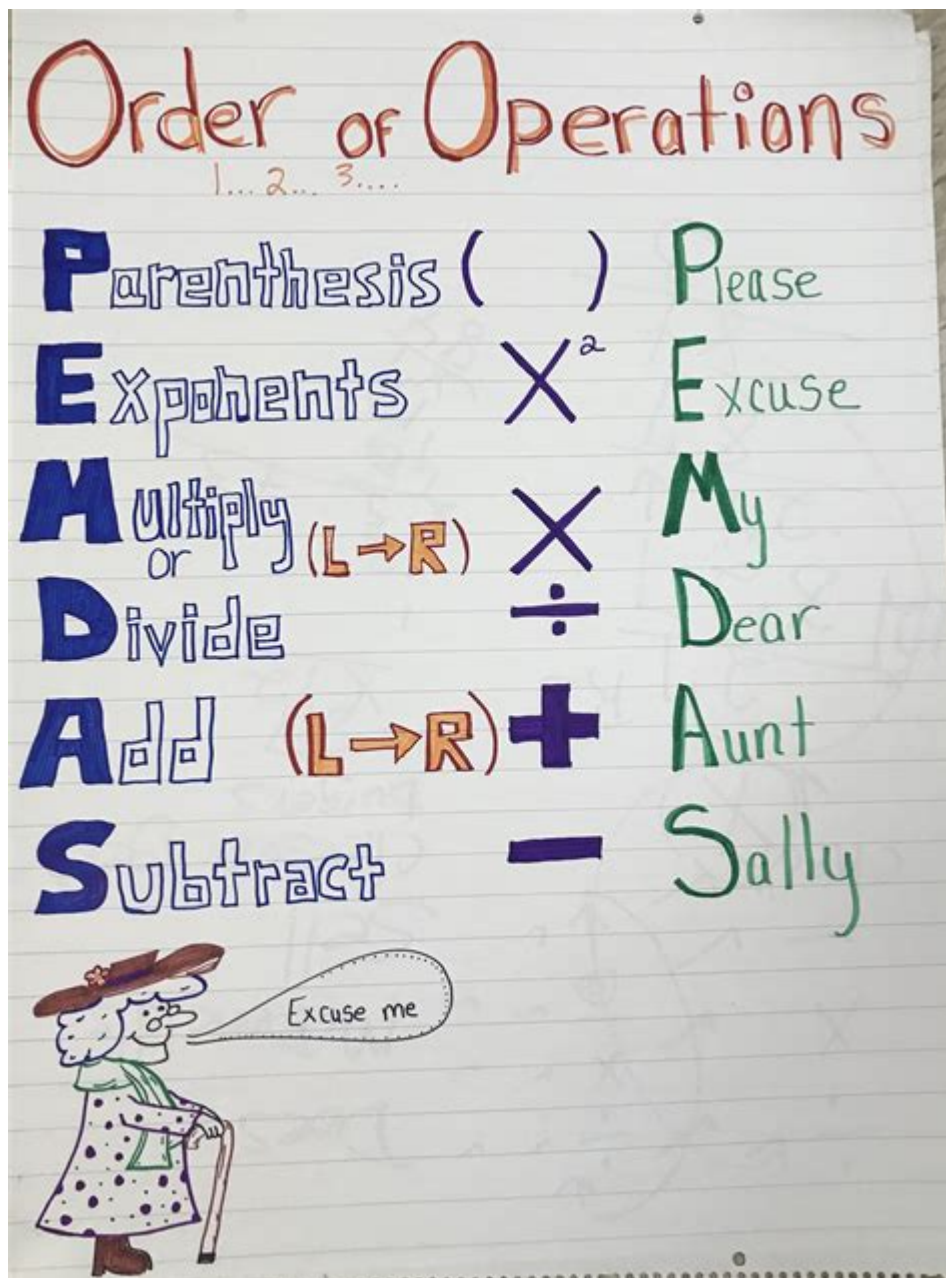 Order of Operations
1... 2... 3....
Parenthesis ( ) Please
Exponents X² Excuse
Multiply (L→R) X My
or
Divide ÷ Dear
Add (L→R) + Aunt
Subtract − Sally
Excuse me